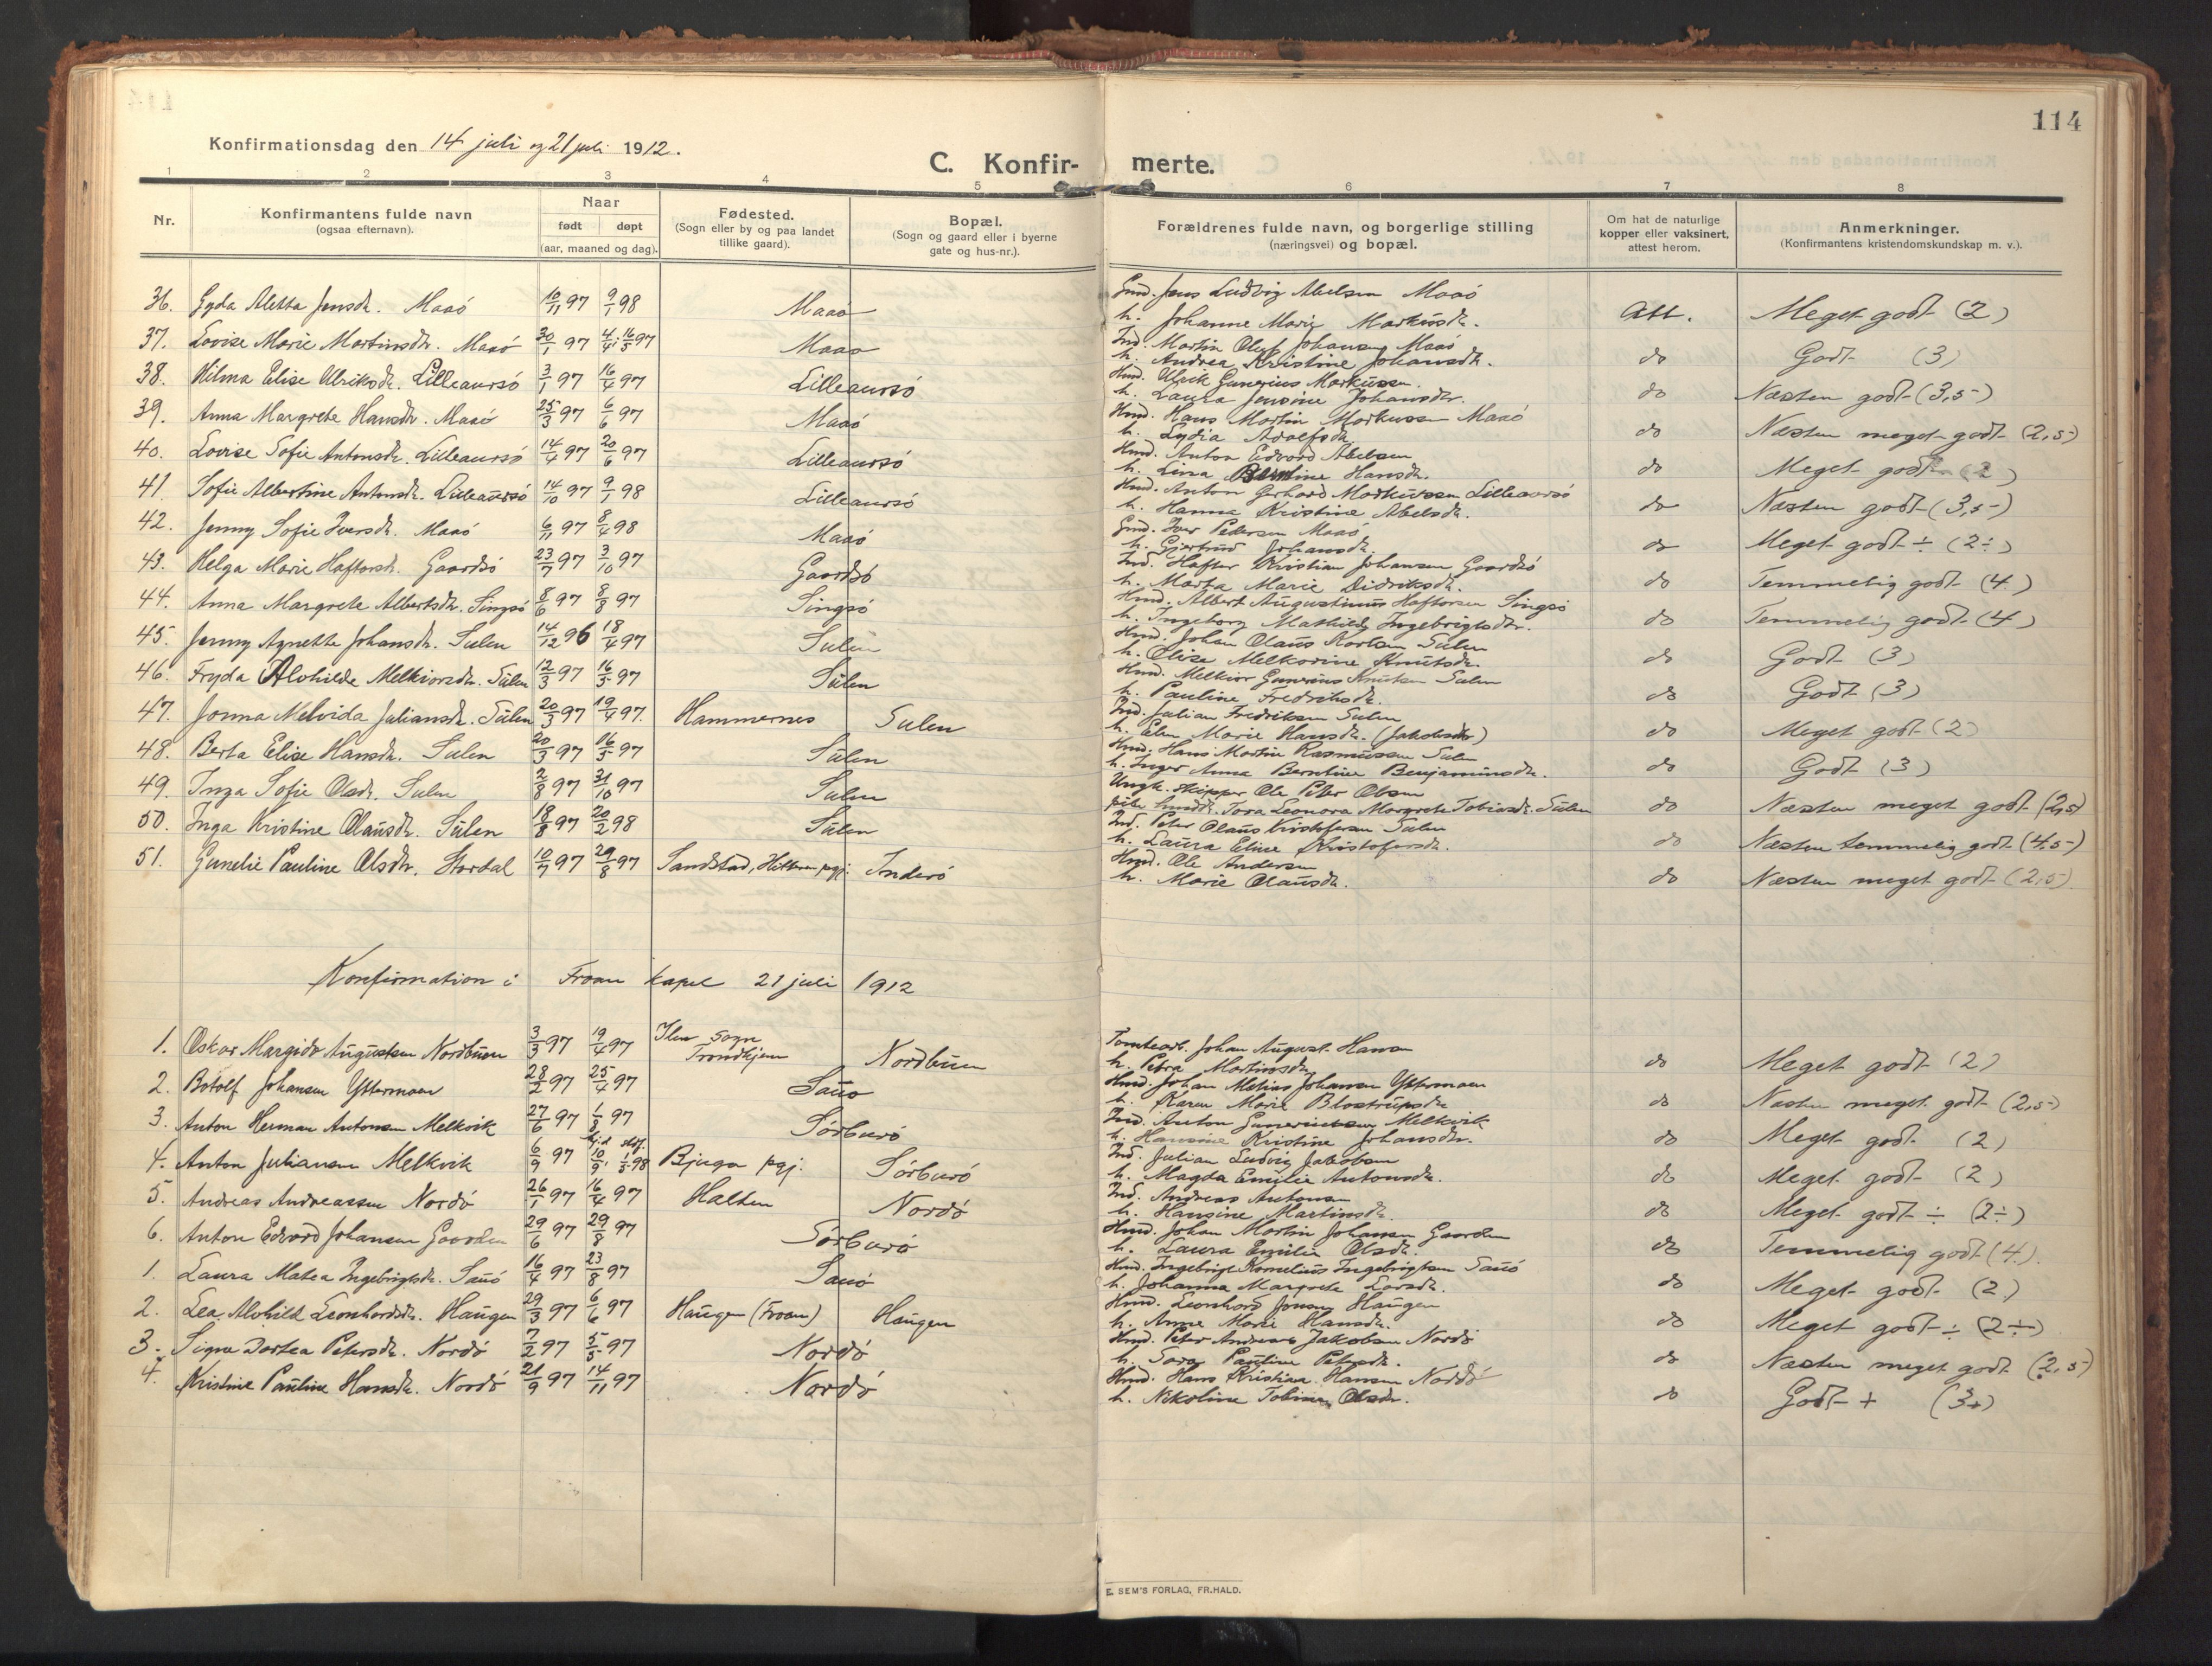 114
Konfirmationsdag den 14 juli og 21 juli 1912.
C. Konfir- merte.
1 2 3 4 5 6 7 8
Nr.
Konfirmantens fulde navn
(ogsaa efternavn).
Naar
født døpt
(aar, maaned og dag).
Fødested.
(Sogn eller by og paa landet
tillike gaard).
Bopæl.
(Sogn og gaard eller i byerne
gate og hus-nr.).
Forældrenes fulde navn, og borgerlige stilling
(næringsvei) og bopæl.
Om hat de naturlige
kopper eller vaksinert,
attest herom.
Anmerkninger.
(Konfirmantens kristendomskundskap m. v.).
36. Gyda Aletta Jensdr. Maaö 10/11 97 9/1 98 Maaö
Gmd. Jens Ludvig Abelsen Maaö
h. Johanne Marie Markusdr. Att. Meget godt (2)
37. Lovise Marie Martinsdr. Maaö 30/1 97 4/4, 16/5 97 Maaö
Ind. Martin Oluf Johansen Maaö
h. Andrea Kristine Johansdr. do Godt (3)
38. Hilma Elise Ulriksdr. Lilleaursö 3/1 97 16/4 97 Lilleaursö
Hmd. Ulrik Gunerius Markussen.
h. Laura Jensine Johansdr. do Næsten godt (3,5)
39. Anna Margrete Hansdr. Maaö 25/3 97 6/6 97 Maaö
Hmd. Hans Martin Markussen Maaö
h. Lydia Adolfsdr. do Næsten meget godt (2,5)
40. Lovise Sofie Antonsdr. Lilleaursö 14/4 97 20/6 97 Lilleaursö
Hmd. Anton Edvard Abelsen
h. Lina Berntine Hansdr. do Meget godt (2)
41. Sofie Albertine Antonsdr. Lilleaursö 14/10 97 9/1 98 Lilleaursö
Hmd. Anton Gerhard Markussen Lilleaursö
h. Hanna Kristine Abelsdr. do Næsten godt (3,5)
42. Jenny Sofie Iversdr. Maaö 6/11 97 8/4 98 Maaö
Gmd. Iver Petersen Maaö
h. Gjertrud Johansdr. do Meget godt ÷ (2÷)
43. Helga Marie Haftorsdr. Gaardsö 23/7 97 3/10 97 Gaardsö
Ind. Haftor Kristian Johansen Gaardsö
h. Marta Marie Didriksdr. do Temmelig godt (4)
44. Anna Margrete Albertsdr. Singsö 8/6 97 8/8 97 Singsö
Hmd. Albert Augustinus Haftorsen Singsö
h. Ingeborg Mathilde Ingebrigtsdtr. do Temmelig godt (4)
45. Jenny Agnette Johansdr. Sulen 14/12 96 18/4 97 Sulen
Hmd. Johan Olaus Karlsen Sulen
h. Elise Melkorine Knutsdr. do Godt (3)
46. Fryda Alvhilde Melkiorsdr. Sulen 12/3 97 16/5 97 Sulen
Hmd. Melkior Gunerius Knutsen Sulen
h. Pauline Fredriksdr. do Godt (3)
47. Jonna Melvida Juliansdr. Sulen 20/3 97 19/4 97. Hammernes Sulen
Ind. Julian Fredriksen Sulen
h. Elen Marie Hansdr. (Jakobsdtr) do Meget godt (2)
48. Berta Elise Hansdr. Sulen 20/3 97 16/5 97 Sulen
Hmd. Hans Martin Rasmussen Sulen
h. Inger Anna Berntine Benjaminsdr. do Godt (3)
49. Inga Sofie Olsdr. Sulen 2/8 97 31/10 97 Sulen
Ungk. skipper Ole Peter Olsen
pike Tora Leonora Margrete Tobiasdr. Sulen do Næsten meget godt (2,5)
50. Inga Kristine Olausdr. Sulen 18/8 97 20/2 98 Sulen
Ind. Peter Olaus Kristofersen Sulen
h. Laura Eline Kristofersdr. do Næsten temmelig godt (4,5)
51. Gunelie Pauline Olsdr. Stordal 10/7 97 29/8 97 Sandstad, Hitteren pgj. Inderö
Hmd. Ole Andersen
h. Marie Olausdr. do Næsten meget godt (2,5)
Konfirmation i Froan kapel 21 juli 1912
1. Oskar Margido Augustsen Nordbuen 3/3 97 19/4 97 Ilens sogn Trondhjem Nordbuen
Tomtearb. Johan August Hansen
h. Petra Martinsdr. do Meget godt (2)
2. Botolf Johansen Yttermoen 28/2 97 25/4 97 Sauö
Hmd. Johan Metius Johansen Yttermoen
h. Karen Marie Blostrupsdr. do Næsten meget godt (2,5)
3. Anton Herman Antonsen Melkvik 27/6 97 1/8 97 Sörburö
Ind. Anton Gunerius Melkvik
h. Hansine Kristine Johansdtr. do Meget godt (2)
4. Anton Juliansen Melkvik 6/9 97 hjd. 10/9, stdf. 1/5 98 Bjugn pgj. Sörburö
Ind. Julian Ludvig Jakobsen
h. Magda Emilie Antonsdr. do Meget godt (2)
5. Andreas Andreassen Nordö 26/1 97 16/4 97 Halten Nordö
Ind. Andreas Antonsen
h. Hansine Martinsdr. do Meget godt ÷ (2÷)
6. Anton Edvard Johansen Gaarden 29/6 97 29/8 97 Sörburö
Hmd. Johan Martin Johansen Gaarden
h. Laura Emilie Olsdr. do Temmelig godt (4).
1. Laura Matea Ingebrigtsdr. Sauö 16/4 97 23/8 97 Sauö
Hmd. Ingebrigt Kornelius Ingebrigtsen Sauö
h. Johanna Margrete Larsdr. do Meget godt (2)
2. Lea Alvhild Leonhardsdr. Haugen 29/3 97 6/6 97 Haugen (Froan) Haugen
Hmd. Leonhard Jensen Haugen
h. Anne Marie Hansdr. do Meget godt ÷ (2÷)
3. Signe Dortea Petersdr. Nordö 7/2 97 5/5 97 Nordö
Hmd. Peter Andreas Jakobsen Nordö
h. Sara Pauline Petersdr. do Næsten meget godt (2,5)
4. Kristine Pauline Hansdr. Nordö 21/9 97 14/11 97 Nordö
Hmd. Hans Kristian Hansen Nordö
h. Nikoline Tobine Olsdr. do Godt + (3+)
E. SEM'S FORLAG, FR.HALD.